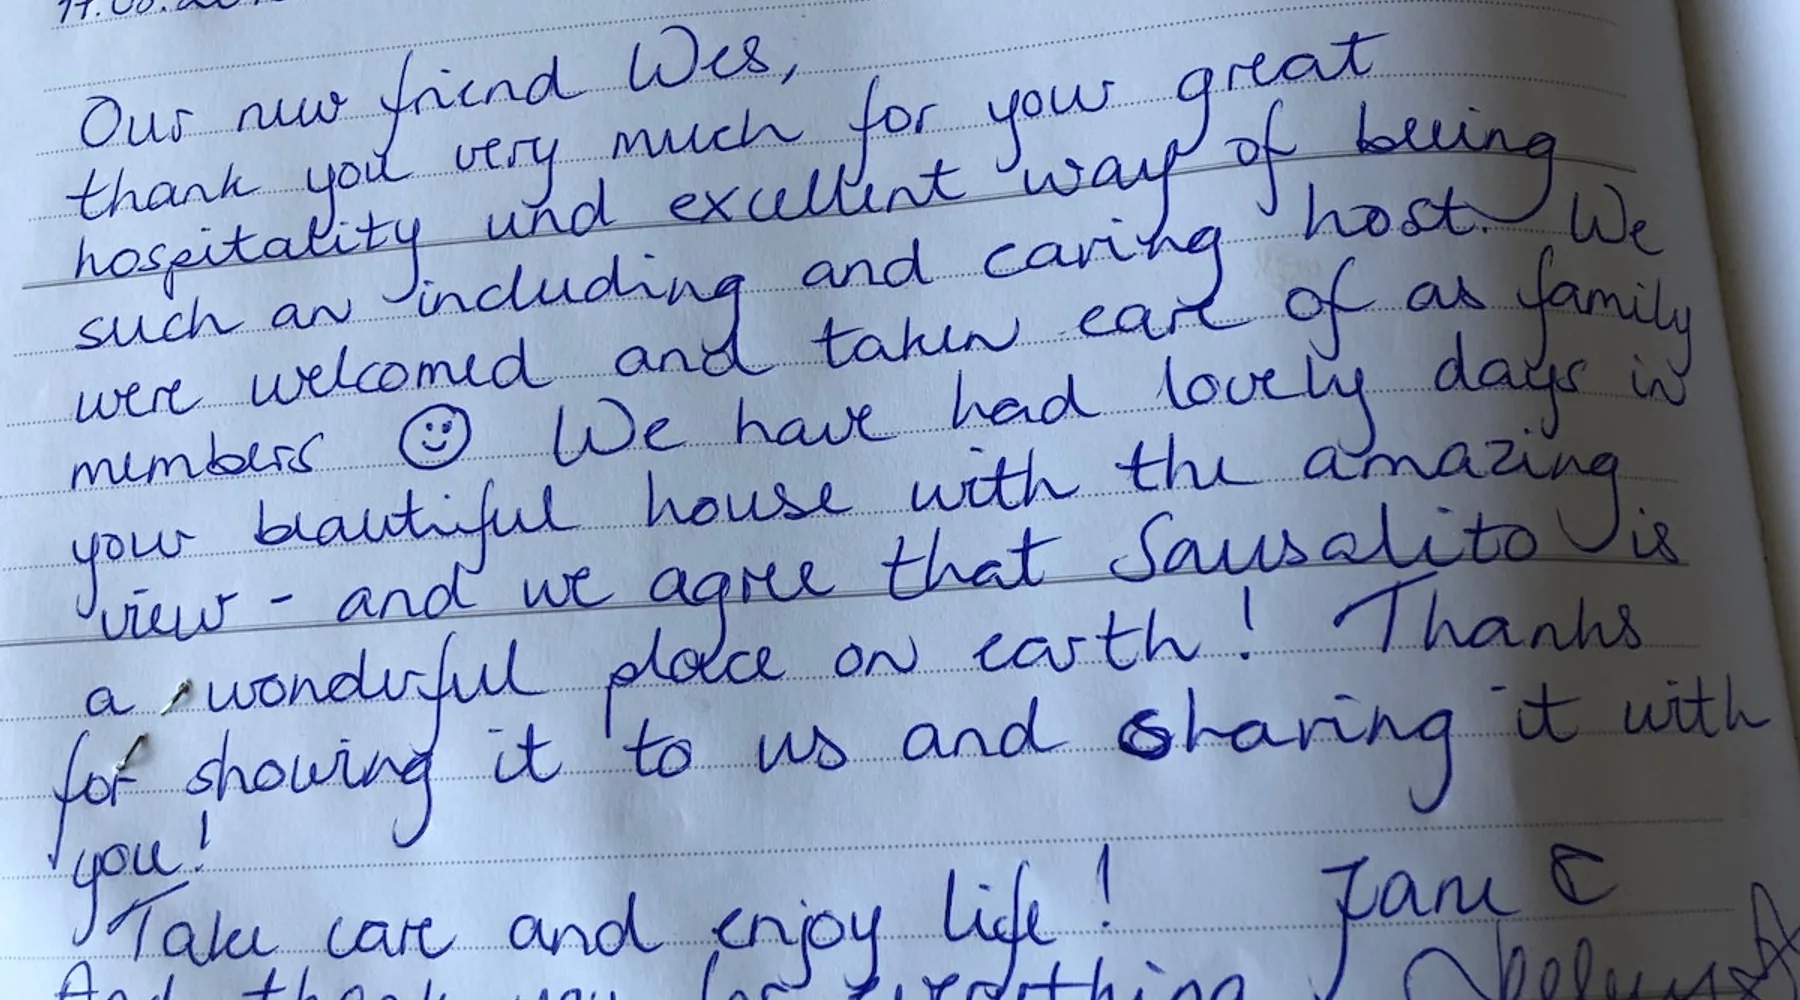 Our new friend Wes,
thank you very much for your great
hospitality und excellent way of beeing
such an including and caring host. We
were welcomed and taken care of as family
members ☺ We have had lovely days in
your beautiful house with the amazing
view - and we agree that Sausalito is
a wonderful place on earth! Thanks
for showing it to us and sharing it with
you!
Take care and enjoy life! Jane
And thank you for everything